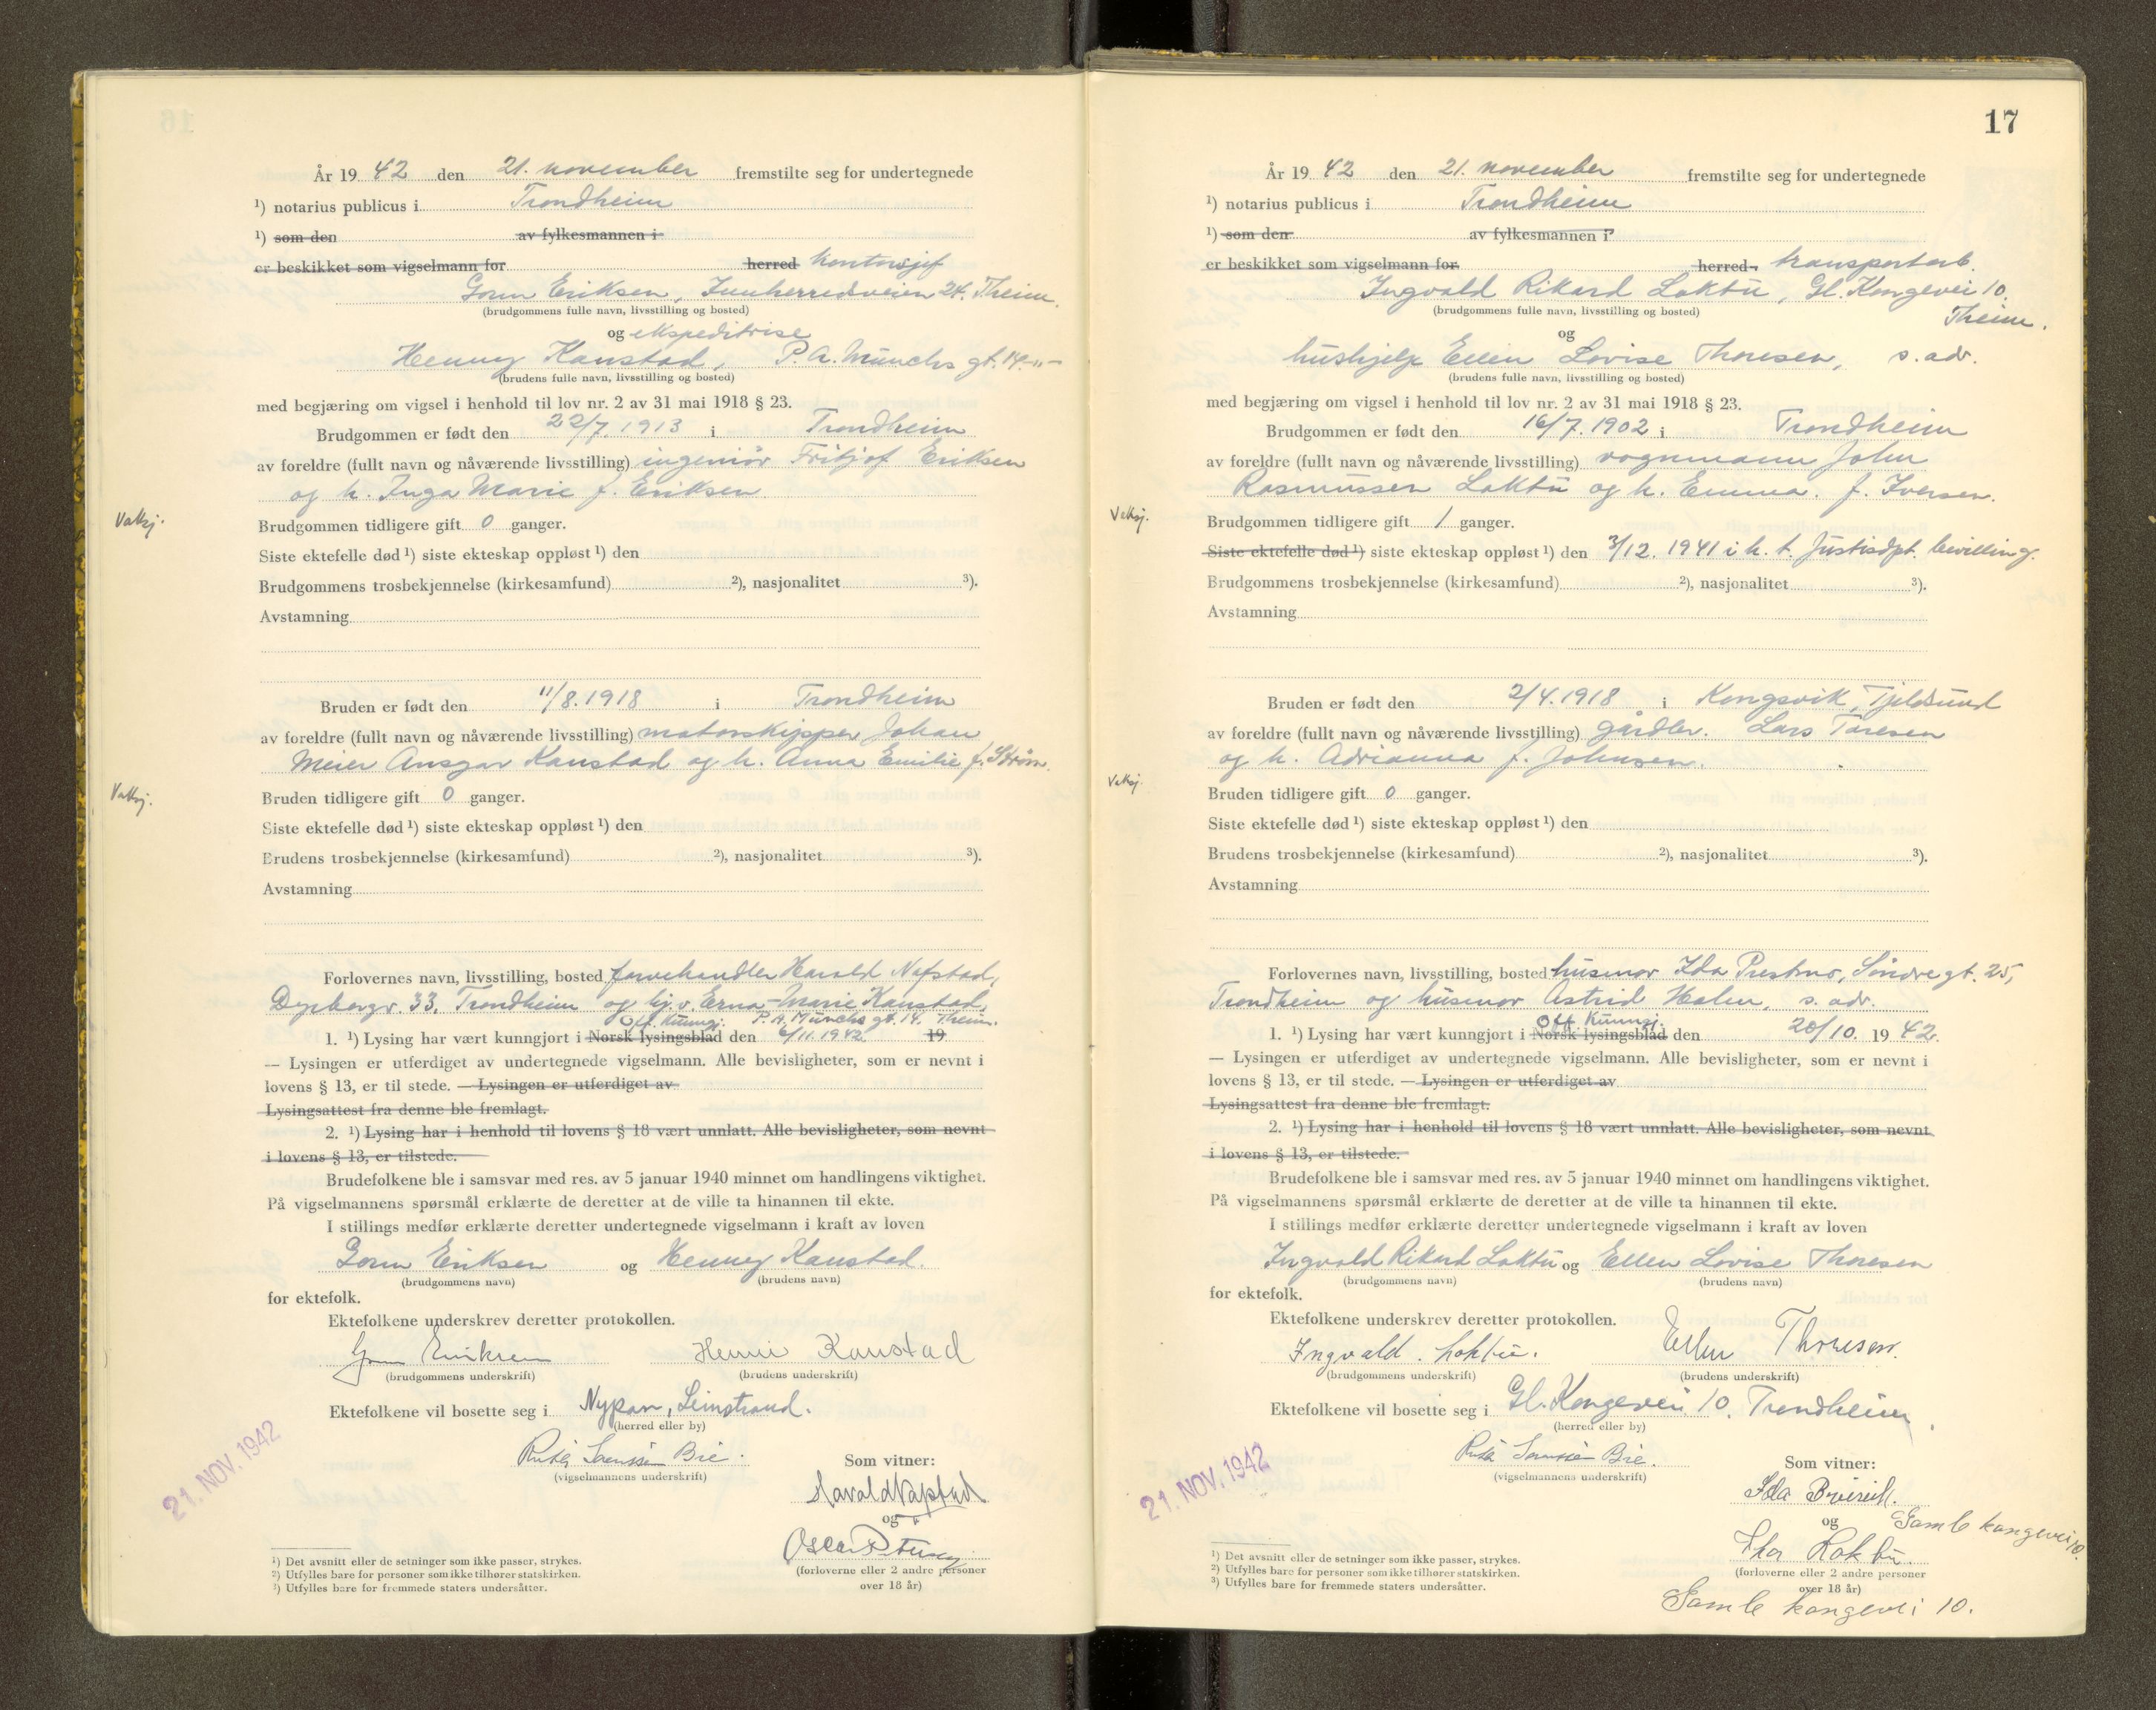 År 19 42 den 21. november fremstilte seg for undertegnede
¹) notarius publicus i Trondheim
¹) som den av fylkesmannen i
er beskikket som vigselmann for herred kontorsjef
Gorm Eriksen, Innherredsveien 24. Theim.
(brudgommens fulle navn, livsstilling og bosted)
og ekspeditrise
Henny Kanstad, P. A. Munchs gt. 14. -"-
(brudens fulle navn, livsstilling og bosted)
med begjæring om vigsel i henhold til lov nr. 2 av 31 mai 1918 § 23.
Brudgommen er født den 22/7. 1913 i Trondheim
av foreldre (fullt navn og nåværende livsstilling) ingeniør Fritjof Eriksen
og h. Inga Marie f. Eriksen
Vaksj.
Brudgommen tidligere gift 0 ganger.
Siste ektefelle død ¹) siste ekteskap oppløst ¹) den
Brudgommens trosbekjennelse (kirkesamfund) ²), nasjonalitet ³).
Avstamning
Bruden er født den 11/8. 1918 i Trondheim
av foreldre (fullt navn og nåværende livsstilling) motorskipper Johan
Meier Ansgar Kanstad og h. Anna Emilie f. Strøm.
Vaksj.
Bruden tidligere gift 0 ganger.
Siste ektefelle død ¹) siste ekteskap oppløst ¹) den
Brudens trosbekjennelse (kirkesamfund) ²), nasjonalitet ³).
Avstamning
Forlovernes navn, livsstilling, bosted farvehandler Harald Nafstad,
33, Trondheim og hj.v. Erna-Marie Kanstad,
Off. Kunngj. P. A. Munchs gt. 14. Theim.
1. ¹) Lysing har vært kunngjort i Norsk lysingsblad den 6/11. 1942. 19
— Lysingen er utferdiget av undertegnede vigselmann. Alle bevisligheter, som er nevnt i
lovens § 13, er til stede. — Lysingen er utferdiget av
Lysingsattest fra denne ble fremlagt.
2. ¹) Lysing har i henhold til lovens § 18 vært unnlatt. Alle bevisligheter, som nevnt
i lovens § 13, er tilstede.
Brudefolkene ble i samsvar med res. av 5 januar 1940 minnet om handlingens viktighet.
På vigselmannens spørsmål erklærte de deretter at de ville ta hinannen til ekte.
I stillings medfør erklærte deretter undertegnede vigselmann i kraft av loven
Gorm Eriksen og Henny Kanstad.
(brudgommens navn) (brudens navn)
for ektefolk.
Ektefolkene underskrev deretter protokollen.
Gorm Eriksen Henni Kanstad
(brudgommens underskrift) (brudens underskrift)
Ektefolkene vil bosette seg i Nypan, Leinstrand.
(herred eller by)
21. NOV. 1942
Bie.
(vigselmannens underskrift)
Som vitner:
Harald Nafstad
og
Oscar
(forloverne eller 2 andre personer
over 18 år)
¹) Det avsnitt eller de setninger som ikke passer, strykes.
²) Utfylles bare for personer som ikke tilhører statskirken.
³) Utfylles bare for fremmede staters undersåtter.
17
År 19 42 den 21. november fremstilte seg for undertegnede
¹) notarius publicus i Trondheim
¹) som den av fylkesmannen i
er beskikket som vigselmann for herred. transportarb.
Ingvald Rikard Loktu, Gl. Kongevei 10.
Theim.
(brudgommens fulle navn, livsstilling og bosted)
og
hushjelp Ellen Lovise Thoresen, s. adr.
(brudens fulle navn, livsstilling og bosted)
med begjæring om vigsel i henhold til lov nr. 2 av 31 mai 1918 § 23.
Brudgommen er født den 16/7. 1902 i Trondheim
av foreldre (fullt navn og nåværende livsstilling) vognmann John
Rasmussen Loktu og h. Emma. f. Iversen.
Vaksj.
Brudgommen tidligere gift 1 ganger.
Siste ektefelle død ¹) siste ekteskap oppløst ¹) den 3/12. 1941 i h. t. Justisdpt. bevilling.
Brudgommens trosbekjennelse (kirkesamfund) ²), nasjonalitet ³).
Avstamning
Bruden er født den 2/4. 1918 i Kongsvik, Tjeldsund
av foreldre (fullt navn og nåværende livsstilling) gårdbr. Lars Toresen
og h. Adrianna f. Johnsen.
Vaksj.
Bruden tidligere gift 0 ganger.
Siste ektefelle død ¹) siste ekteskap oppløst ¹) den
Brudens trosbekjennelse (kirkesamfund) ²), nasjonalitet ³).
Avstamning
Forlovernes navn, livsstilling, bosted husmor Ida Prestmo, Søndregt. 25,
Trondheim og husmor Astrid Holm, s. adr.
Off. Kunngj.
1. ¹) Lysing har vært kunngjort i Norsk lysingsblad den 20/10. 19 42.
— Lysingen er utferdiget av undertegnede vigselmann. Alle bevisligheter, som er nevnt i
lovens § 13, er til stede. — Lysingen er utferdiget av
Lysingsattest fra denne ble fremlagt.
2. ¹) Lysing har i henhold til lovens § 18 vært unnlatt. Alle bevisligheter, som nevnt
i lovens § 13, er tilstede.
Brudefolkene ble i samsvar med res. av 5 januar 1940 minnet om handlingens viktighet.
På vigselmannens spørsmål erklærte de deretter at de ville ta hinannen til ekte.
I stillings medfør erklærte deretter undertegnede vigselmann i kraft av loven
Ingvald Rikard Loktu og Ellen Lovise Thoresen
(brudgommens navn) (brudens navn)
for ektefolk.
Ektefolkene underskrev deretter protokollen.
Ingvald. Loktu. Ellen Thoresen.
(brudgommens underskrift) (brudens underskrift)
Ektefolkene vil bosette seg i Gl. Kongevei 10. Trondheim.
(herred eller by)
21. NOV. 1942
Bie.
(vigselmannens underskrift)
Som vitner:
Ida
og Gamle kongevei 10.
Thor Loktu.
(forloverne eller 2 andre personer
over 18 år)
Gamle kongevei 10.
¹) Det avsnitt eller de setninger som ikke passer, strykes.
²) Utfylles bare for personer som ikke tilhører statskirken.
³) Utfylles bare for fremmede staters undersåtter.